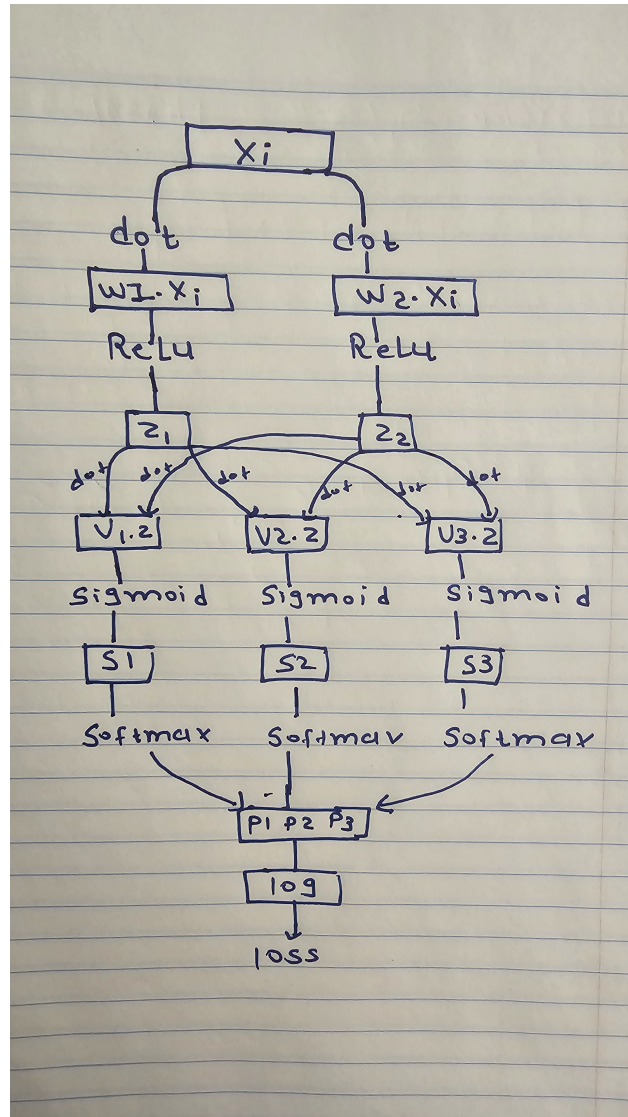 Xi
dot dot
W1.Xi W2.Xi
ReLu ReLu
Z1 Z2
dot dot dot dot dot dot
V1.2 V2.2 V3.2
Sigmoid Sigmoid Sigmoid
S1 S2 S3
Softmax Softmax Softmax
P1 P2 P3
log
loss